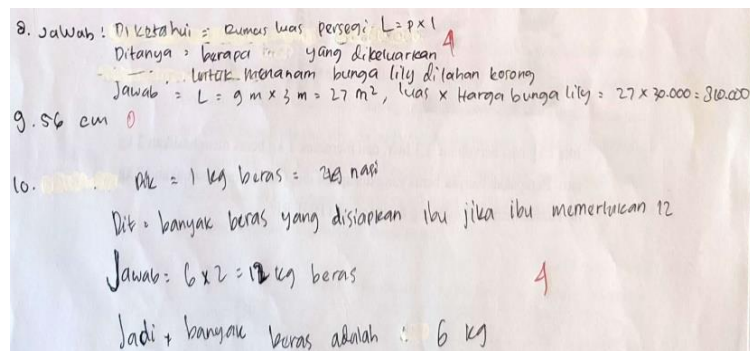 8. Jawab : Diketahui = Rumus luas persegi : L = p x l
Ditanya = berapa yang dikeluarkan 4
untuk menanam bunga lily dilahan kosong
Jawab = L = 9 m x 3 m = 27 m², luas x Harga bunga lily = 27 x 30.000 = 810.000
9. 56 cm 0
10. Dik = 1 kg beras = nasi
Dit = banyak beras yang disiapkan ibu jika ibu memerlukan 12
Jawab = 6 x 2 = 12 kg beras 4
Jadi, banyak beras adalah : 6 kg